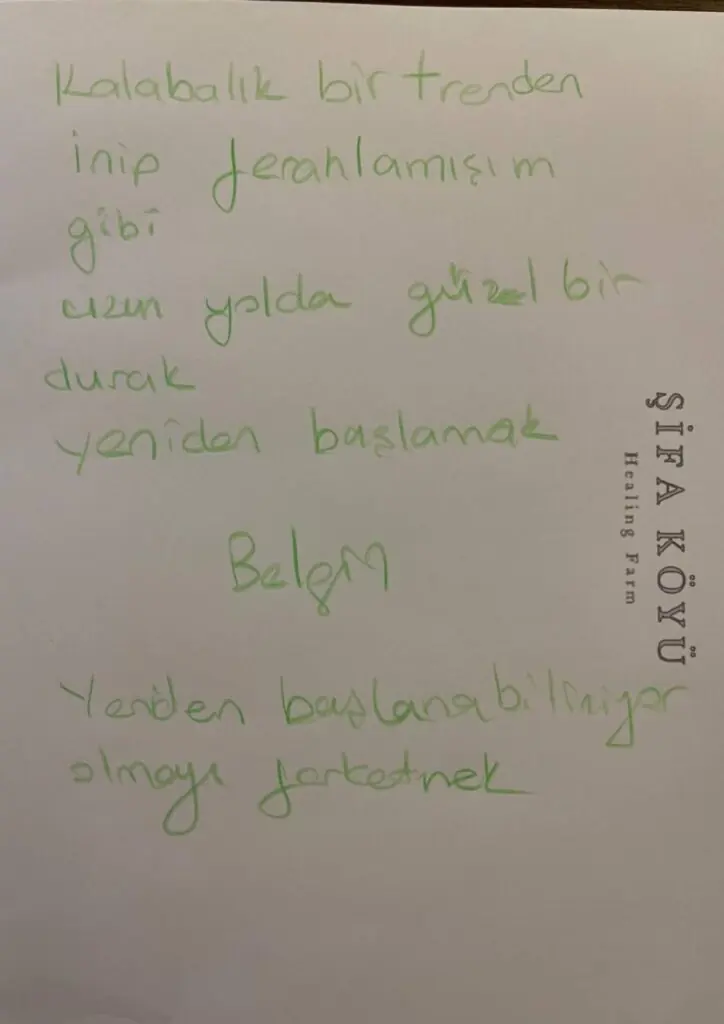 Kalabalık bir trenden
inip ferahlamışım
gibi
uzun yolda güzel bir
durak
yeniden başlamak
Yeniden başlanabiliniyor
olmayı farketmek
ŞİFA KÖYÜ
Healing Farm